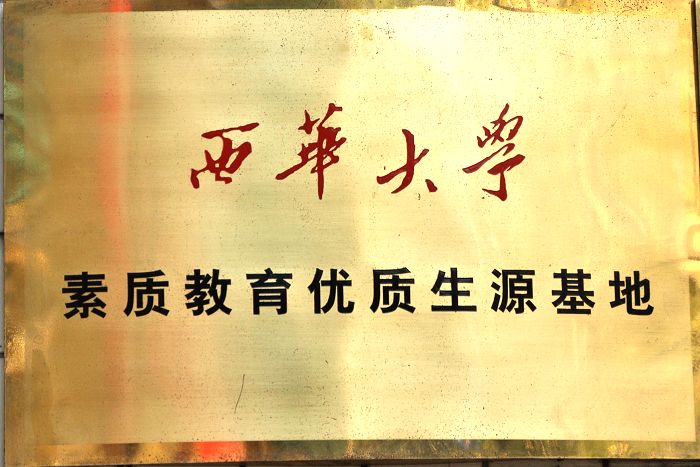 西華大學
素质教育优质生源基地